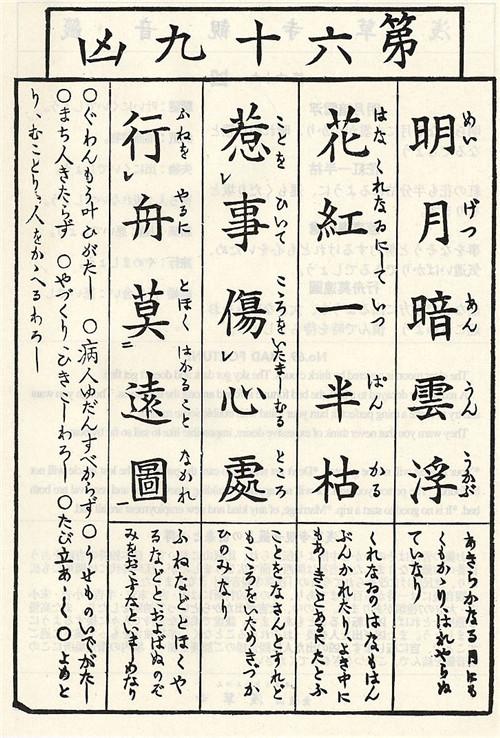 第六十九凶
めい げつ あん うん うかぶ
明月暗雲浮
あきらかなる月にも
くもかゝりはれやらぬ
ていなり
はな くれなゐにしていつ ぱん かる
花紅一半枯
くれなゐのはなもはん
ぶんかれたりよき中に
もあしきこと
ことを ひいて こころをいたましむる ところ
惹事傷心處
ことをなさんとすれど
もこゝろをいためきづか
ひのみ
ふねを やるに とほく はかること なかれ
行舟莫遠圖
ふねなどとほくや
るなどとおよばぬのぞ
みをおこすなといましめなり
〇ぐわんもう叶ひがたし 〇病人ゆだんすべからず〇うせものいでがたし
〇まち人きたらず 〇やづくりひきこしわろし 〇たび立あしく〇よめと
り、むことり、人をかゝへるわろし